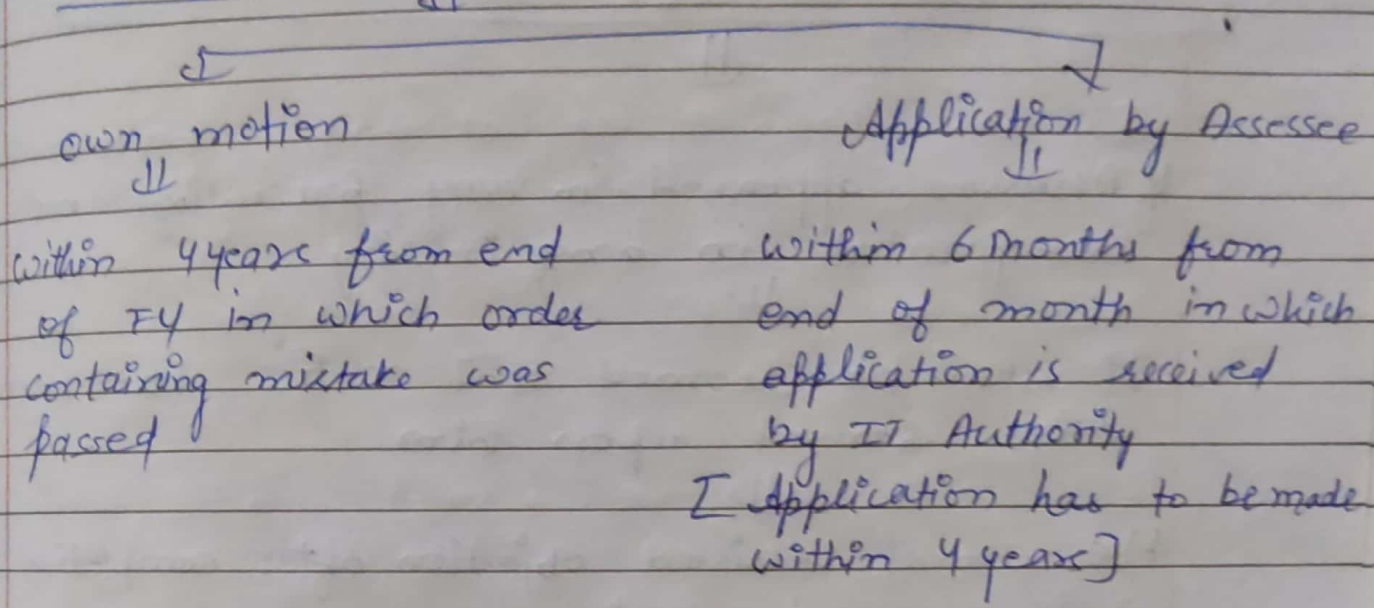 own motion
within 4 years from end
of FY in which order
containing mistake was
passed
Application by Assessee
within 6 months from
end of month in which
application is received
by IT Authority
[Application has to be made
within 4 years]